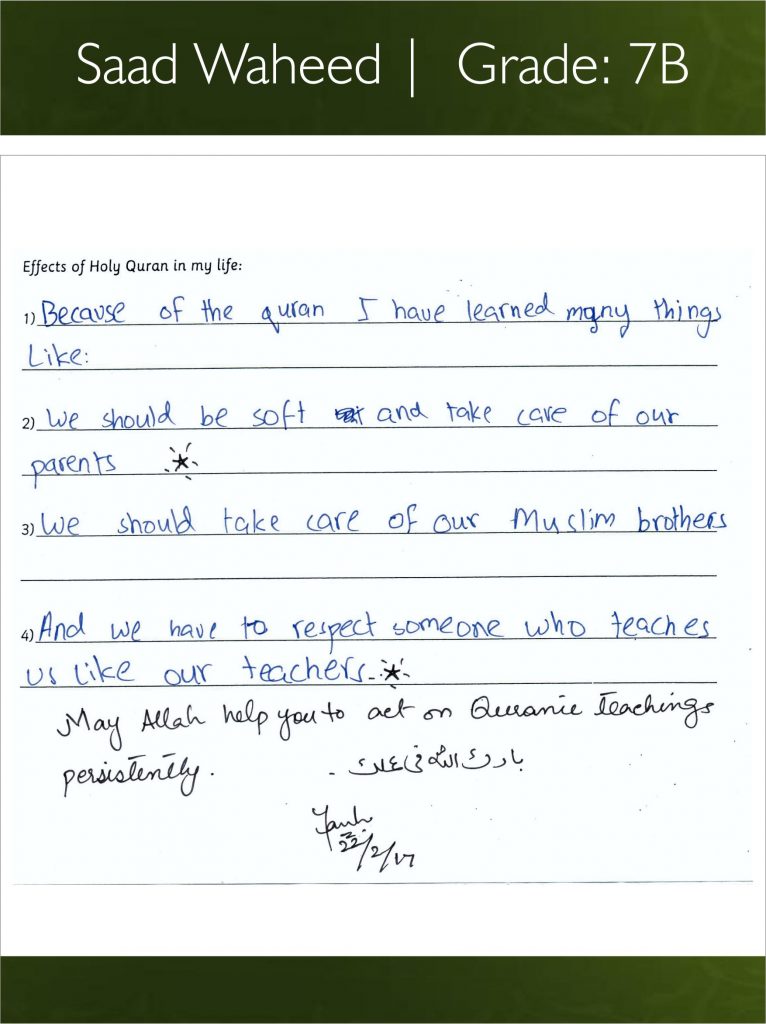 Saad Waheed | Grade: 7B
Effects of Holy Quran in my life:
1) Because of the quran I have learned many things
Like:
2) We should be soft and take care of our
parents
3) We should take care of our Muslim brothers
4) And we have to respect someone who teaches
us like our teachers.
May Allah help you to act on Quranic Teachings
persistently.
بارك الله فى علمك
22/2/17